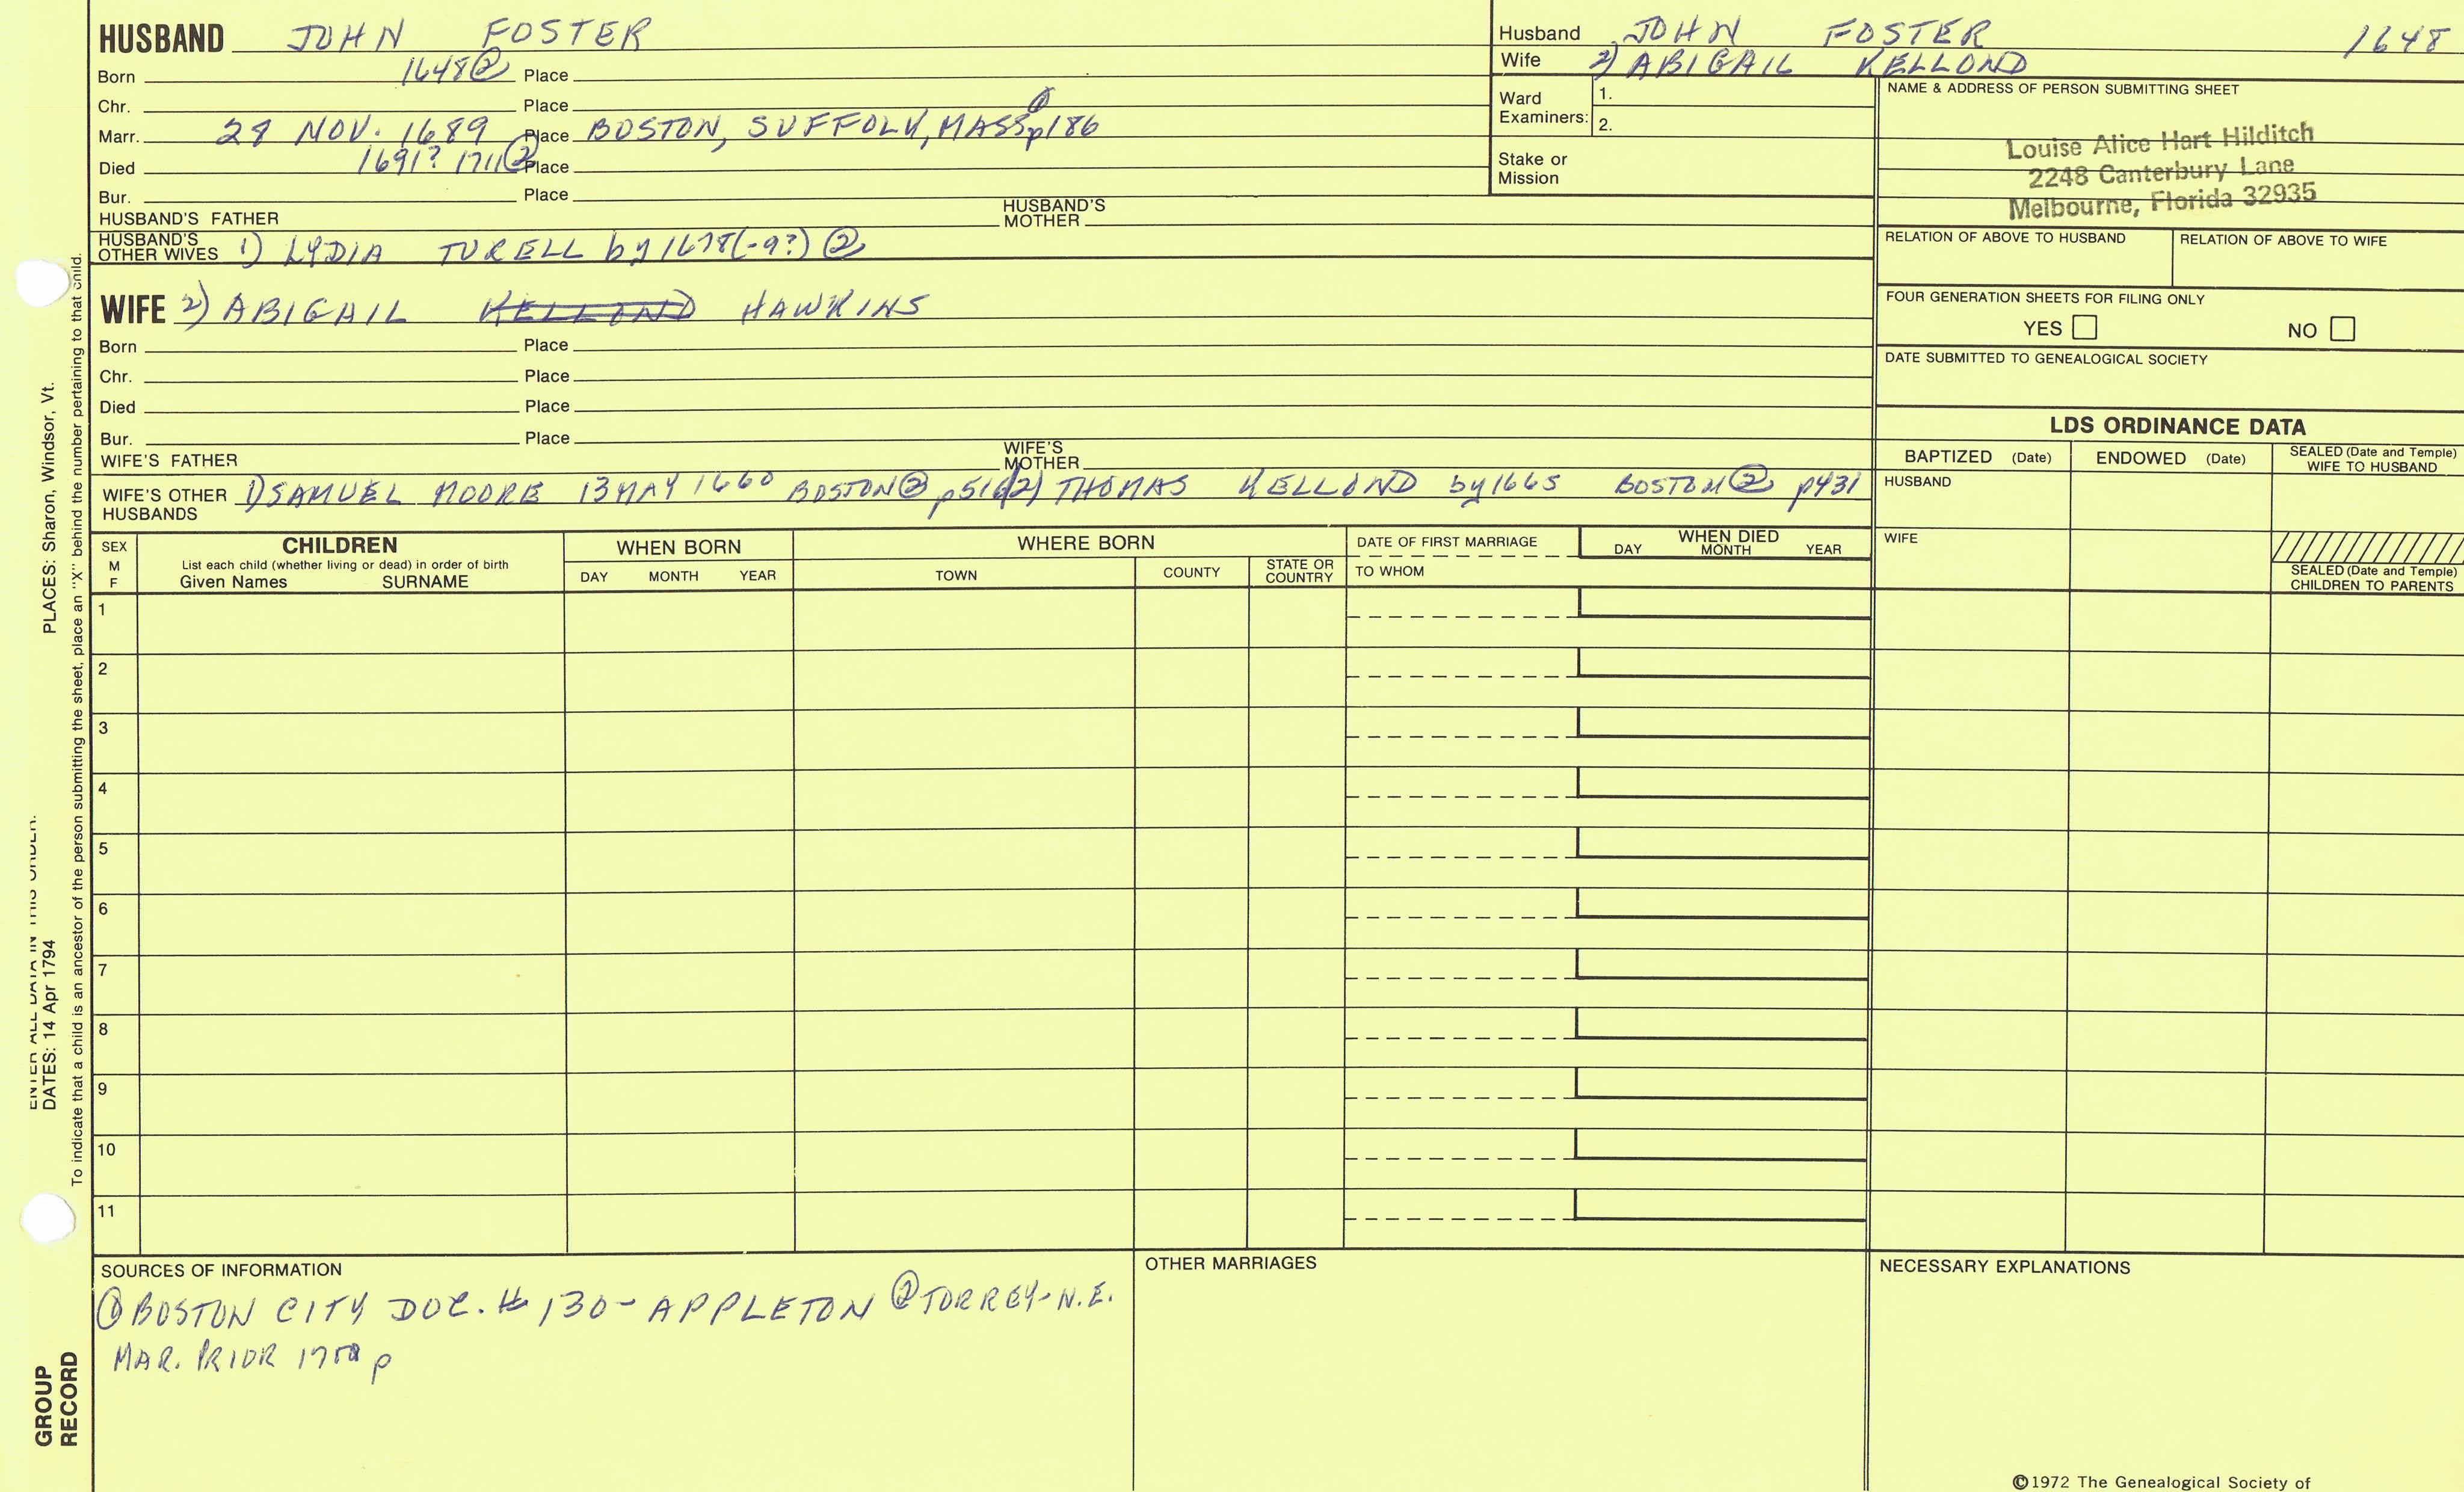 HUSBAND JOHN FOSTER
Born 1648② Place
Chr. Place
Marr. 28 NOV. 1689 Place BOSTON, SUFFOLK, MASS① p186
Died 1691? 1711② Place
Bur. Place
HUSBAND'S FATHER HUSBAND'S MOTHER
HUSBAND'S OTHER WIVES 1) LYDIA TURELL by 1678(-9?) ②
WIFE 2) ABIGAIL KELLOND HAWKINS
Born Place
Chr. Place
Died Place
Bur. Place
WIFE'S FATHER WIFE'S MOTHER
WIFE'S OTHER HUSBANDS 1) SAMUEL MOORE 13 MAY 1660 BOSTON② p516 2) THOMAS KELLOND by 1665 BOSTON② p431
Husband JOHN FOSTER 1648
Wife 2) ABIGAIL KELLOND
Ward Examiners: 1.
2.
Stake or Mission
NAME & ADDRESS OF PERSON SUBMITTING SHEET
Louise Alice Hart Hilditch
2248 Canterbury Lane
Melbourne, Florida 32935
RELATION OF ABOVE TO HUSBAND RELATION OF ABOVE TO WIFE
FOUR GENERATION SHEETS FOR FILING ONLY
YES NO
DATE SUBMITTED TO GENEALOGICAL SOCIETY
LDS ORDINANCE DATA
BAPTIZED (Date) ENDOWED (Date) SEALED (Date and Temple) WIFE TO HUSBAND
HUSBAND
WIFE
SEALED (Date and Temple)
CHILDREN TO PARENTS
SEX M F
CHILDREN
List each child (whether living or dead) in order of birth
Given Names SURNAME
WHEN BORN
DAY MONTH YEAR
WHERE BORN
TOWN COUNTY STATE OR COUNTRY
DATE OF FIRST MARRIAGE
TO WHOM
WHEN DIED
DAY MONTH YEAR
1
2
3
4
5
6
7
8
9
10
11
SOURCES OF INFORMATION
①BOSTON CITY DOC. # 130- APPLETON ②TORREY- N.E.
MAR. PRIOR 1700 p
OTHER MARRIAGES
NECESSARY EXPLANATIONS
©1972 The Genealogical Society of
PLACES: Sharon, Windsor, Vt.
ENTER ALL DATA IN THIS ORDER:
DATES: 14 Apr 1794
To indicate that a child is an ancestor of the person submitting the sheet, place an "X" behind the number pertaining to that child.
GROUP
RECORD